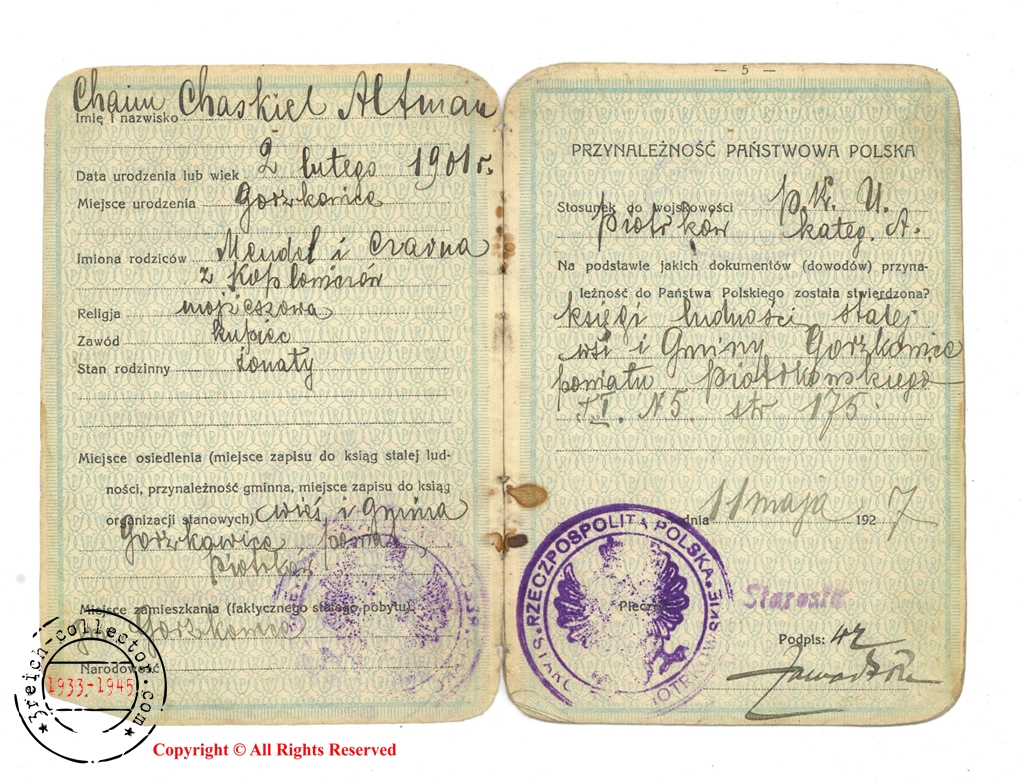 Chaim Chaskiel Altman
Imię i nazwisko
Data urodzenia lub wiek 2 lutego 1901 r.
Miejsce urodzenia Gorzkowice
Imiona rodziców Mendel i
z Koplowiczów
Religja mojżeszowa
Zawód kupiec
Stan rodzinny żonaty
Miejsce osiedlenia (miejsce zapisu do ksiąg stałej lud-
ności, przynależność gminna, miejsce zapisu do ksiąg
organizacji stanowych) wieś i Gmina
Gorzkowice
Piotrków
Miejsce zamieszkania (faktycznego stałego pobytu)
Gorzkowice
Narodowość
— 5 —
PRZYNALEŻNOŚĆ PAŃSTWOWA POLSKA
Stosunek do wojskowości P. K. U.
Piotrków kateg. A.
Na podstawie jakich dokumentów (dowodów) przyna-
leżność do Państwa Polskiego została stwierdzona?
księgi ludności stałej
wsi i Gminy Gorzkowice
powiatu Piotrkowskiego
str 175.
dnia 11 maja 1927
RZECZPOSPOLITA POLSKA
Pieczęć
Starosta
Podpis: wz
3reich-collector.com
1933-1945
Copyright © All Rights Reserved